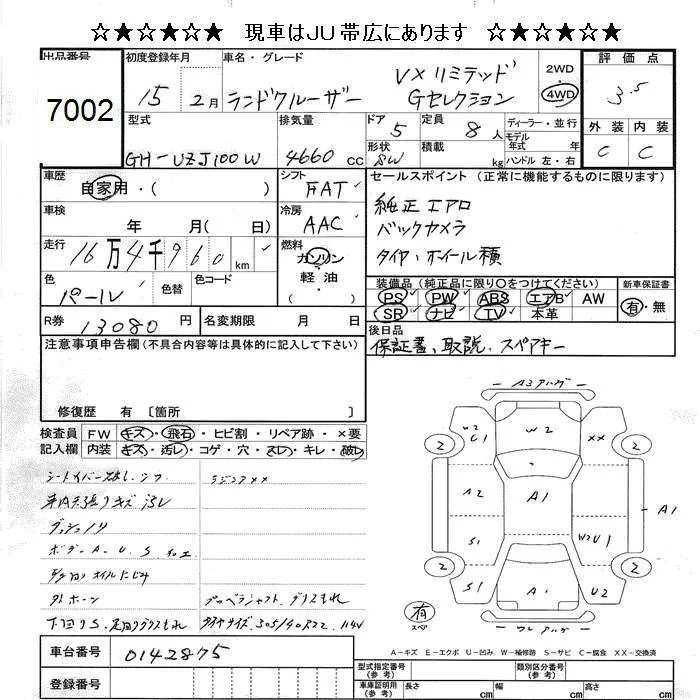 ☆★☆★☆★ 現車はJU帯広にあります ☆★☆★☆★
出品番号 7002
初度登録年月 15 2月
車名・グレード ランドクルーザー VXリミテッド Gセレクション
2WD 4WD
評価点 3.5
外装 C 内装 C
型式 GH-UZJ100W
排気量 4660 cc
ドア 5 形状 SW
定員 8 人 積載 kg
ディーラー・並行
モデル年式 年式
ハンドル 左・右
車歴 自家用・( )
シフト FAT
車検 年 月( 日)
冷房 AAC
走行 16万4千960 km
燃料 ガソリン・軽油・( )
色 パール 色替 色コード
R券 13080 円
名変期限 月 日
セールスポイント (正常に機能するものに限ります)
純正エアロ
バックカメラ
タイヤ・ホイール積
装備品 (純正品に限り○をつけてください)
PS PW ABS エアB AW
SR ナビ TV 本革
新車保証書 有・無
後日品
保証書、取説、スペアキー
注意事項申告欄 (不具合内容等は具体的に記入して下さい)
修復歴 有 〔箇所 〕
検査員記入欄
FW キズ・飛石・ヒビ割・リペア跡・×要
内装 キズ・汚レ・コゲ・穴・スレ・キレ・破レ
車内天張りキズ汚レ
ボデーA・U・S
オイルにじみ
外ホーン
プロペラシャフト、グリスもれ
下回りS、足回りグリスもれ
タイヤサイズ305/40R22 114V
A3
W2 U1
W2
XX
2
2
A2
A1
A1
S1
W2 U1
2
2
S1
A1
U2
有 スペア
A-キズ E-エクボ U-凹み W-補修跡 S-サビ C-腐食 XX-交換済
車台番号 0142875
登録番号
型式指定番号 (参考)
類別区分番号 (参考)
車庫証明用 (参考) 長さ cm 幅 cm 高さ cm